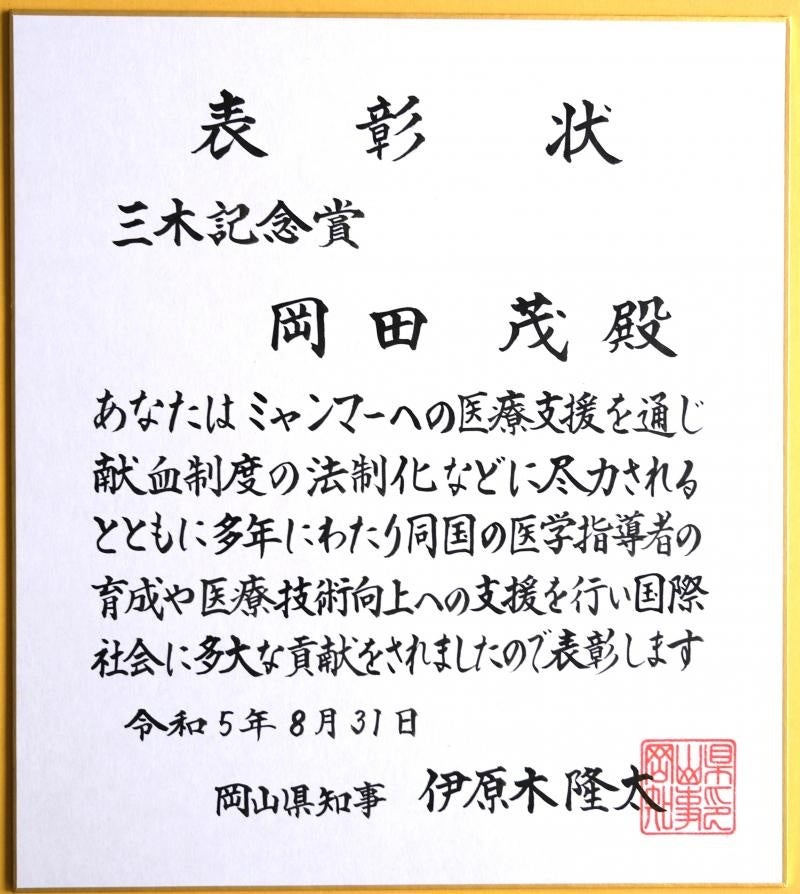 表彰状
三木記念賞
岡田 茂 殿
あなたはミャンマーへの医療支援を通じ
献血制度の法制化などに尽力される
とともに多年にわたり同国の医学指導者の
育成や医療技術向上への支援を行い国際
社会に多大な貢献をされましたので表彰します
令和5年8月31日
岡山県知事 伊原木隆太